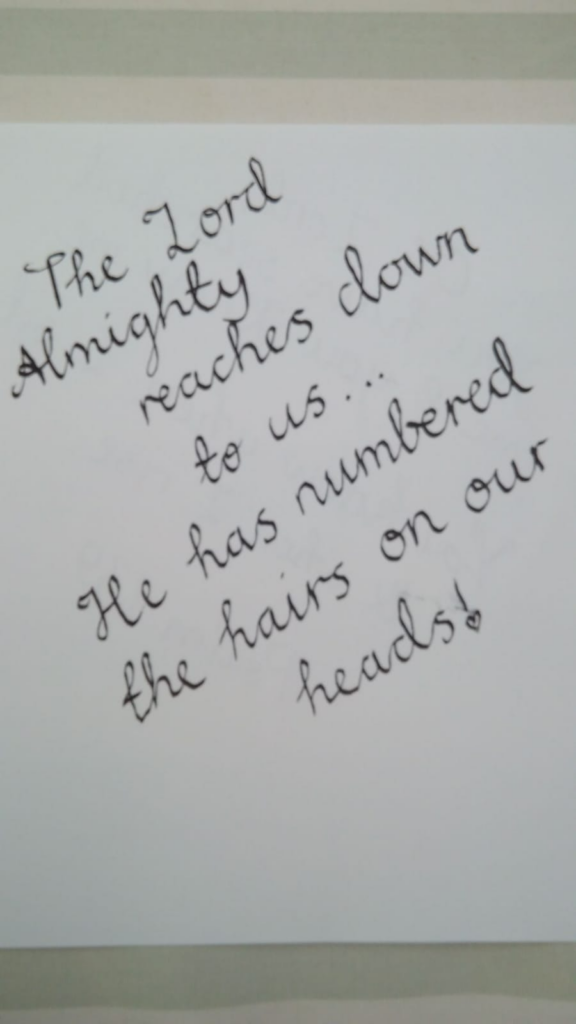 The Lord
Almighty
reaches down
to us...
He has numbered
the hairs on our
heads!